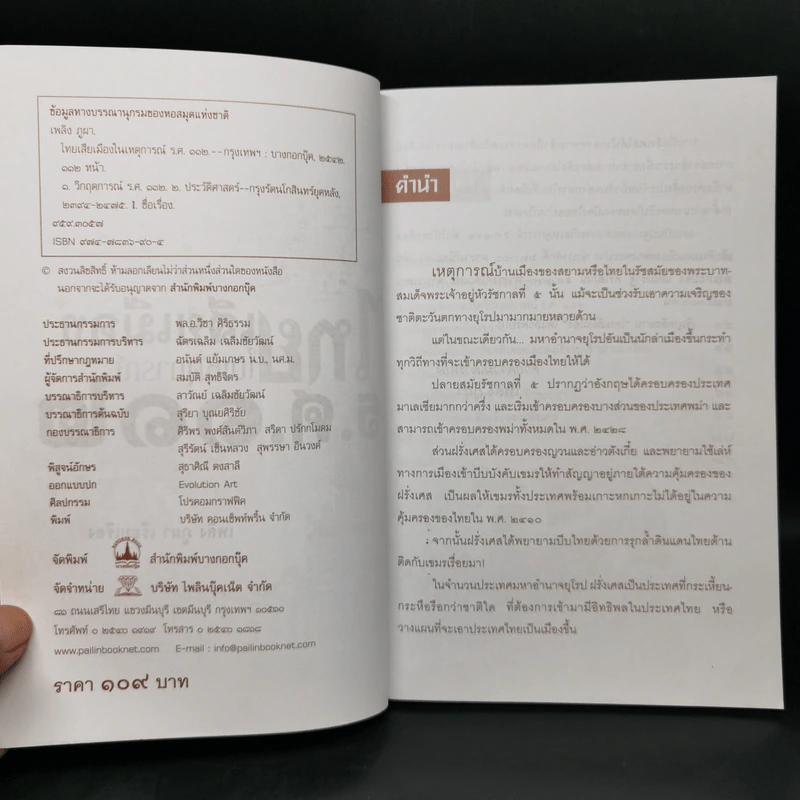 ข้อมูลทางบรรณานุกรมของหอสมุดแห่งชาติ
เพลิง ภูผา.
ไทยเสียเมืองในเหตุการณ์ ร.ศ. ๑๑๒.--กรุงเทพฯ : บางกอกบุ๊ค, ๒๕๔๒.
๑๑๒ หน้า.
๑. วิกฤตการณ์ ร.ศ. ๑๑๒. ๒. ประวัติศาสตร์--กรุงรัตนโกสินทร์ยุคหลัง,
๒๓๙๔-๒๔๗๕. I. ชื่อเรื่อง.
๙๕๙.๓๐๕๗
ISBN ๙๗๔-๗๘๓๖-๙๐-๔
© สงวนลิขสิทธิ์ ห้ามลอกเลียนไม่ว่าส่วนหนึ่งส่วนใดของหนังสือ
นอกจากจะได้รับอนุญาตจาก สำนักพิมพ์บางกอกบุ๊ค
ประธานกรรมการ พล.อ.วิชา ศิริธรรม
ประธานกรรมการบริหาร ฉัตรเฉลิม เฉลิมชัยวัฒน์
ที่ปรึกษากฎหมาย อนันต์ แย้มเกษร น.บ., นศ.ม.
ผู้จัดการสำนักพิมพ์ สมบัติ สุทธิจิตร
บรรณาธิการบริหาร ลาวัณย์ เฉลิมชัยวัฒน์
บรรณาธิการต้นฉบับ สุริยา บุณยศิริชัย
กองบรรณาธิการ ศิริพร พงศ์สันติวิภา สริตา ปรักกโมดม
สุรีรัตน์ เซ็นหลวง สุพรรษา อินวงค์
พิสูจน์อักษร สุธาศิณี ดงสาลี
ออกแบบปก Evolution Art
ศิลปกรรม โปรคอมกราฟฟิค
พิมพ์ บริษัท คอนเซ็พท์พริ้น จำกัด
จัดพิมพ์ สำนักพิมพ์บางกอกบุ๊ค
จัดจำหน่าย บริษัท ไพลินบุ๊คเน็ต จำกัด
๘๖ ถนนเสรีไทย แขวงมีนบุรี เขตมีนบุรี กรุงเทพฯ ๑๐๕๑๐
โทรศัพท์ ๐ ๒๕๔๐ ๑๙๑๙ โทรสาร ๐ ๒๕๔๐ ๑๘๑๘
www.pailinbooknet.com E-mail : info@pailinbooknet.com
ราคา ๑๐๙ บาท
คำนำ
เหตุการณ์บ้านเมืองของสยามหรือไทยในรัชสมัยของพระบาท-
สมเด็จพระเจ้าอยู่หัวรัชกาลที่ ๕ นั้น แม้จะเป็นช่วงรับเอาความเจริญของ
ชาติตะวันตกทางยุโรปมามากมายหลายด้าน
แต่ในขณะเดียวกัน... มหาอำนาจยุโรปอันเป็นนักล่าเมืองขึ้นกระทำ
ทุกวิถีทางที่จะเข้าครอบครองเมืองไทยให้ได้
ปลายสมัยรัชกาลที่ ๕ ปรากฏว่าอังกฤษได้ครอบครองประเทศ
มาเลเซียมากกว่าครึ่ง และเริ่มเข้าครอบครองบางส่วนของประเทศพม่า และ
สามารถเข้าครอบครองพม่าทั้งหมดใน พ.ศ. ๒๔๒๘
ส่วนฝรั่งเศสได้ครอบครองญวนและอ่าวตังเกี๋ย และพยายามใช้เล่ห์
ทางการเมืองเข้าบีบบังคับเขมรให้ทำสัญญาอยู่ภายใต้ความคุ้มครองของ
ฝรั่งเศส เป็นผลให้เขมรทั้งประเทศพร้อมเกาะหกเกาะไม่ได้อยู่ในความ
คุ้มครองของไทยใน พ.ศ. ๒๔๑๐
จากนั้นฝรั่งเศสได้พยายามบีบไทยด้วยการรุกล้ำดินแดนไทยด้าน
ติดกับเขมรเรื่อยมา!
ในจำนวนประเทศมหาอำนาจยุโรป ฝรั่งเศสเป็นประเทศที่กระเหี้ยน-
กระหือรือกว่าชาติใด ที่ต้องการเข้ามามีอิทธิพลในประเทศไทย หรือ
วางแผนที่จะเอาประเทศไทยเป็นเมืองขึ้น